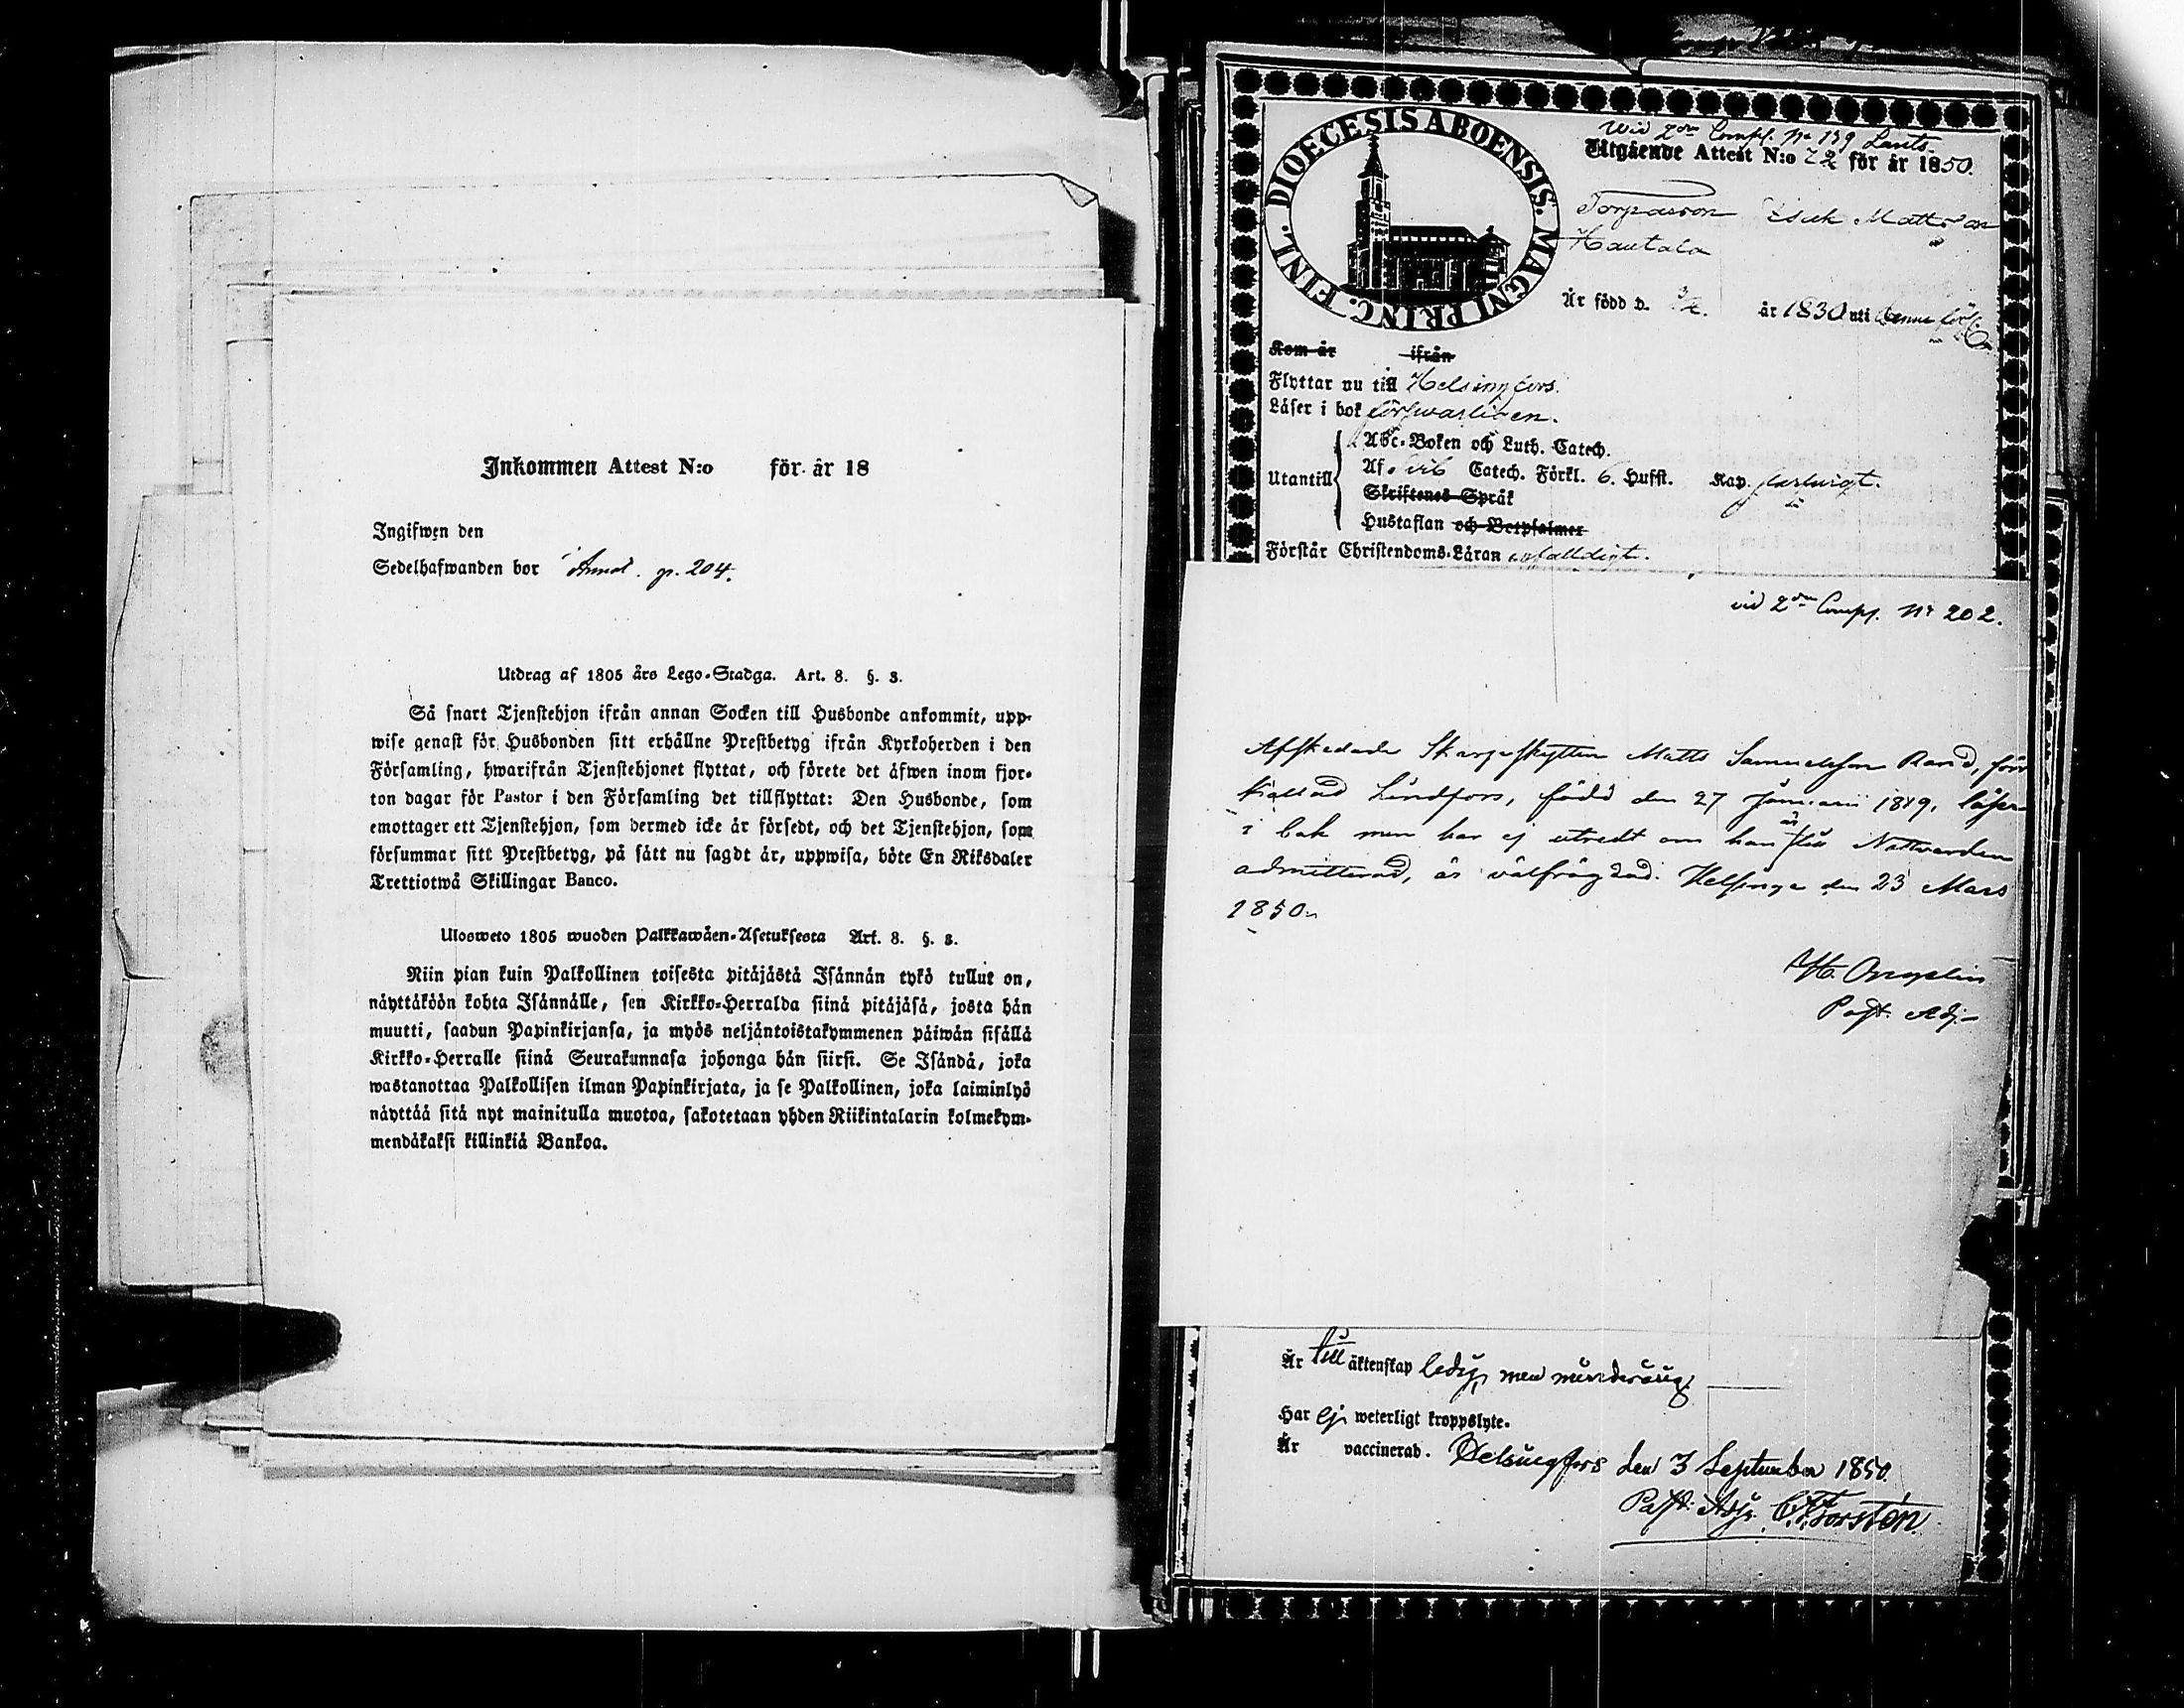 Inkommen Attest N:o för år 18
Ingifwen den
Sedelhafwanden bor p. 204.
Utdrag af 1805 års Lego-Stadga. Art. 8. §. 3.
Så snart Tjenstehjon ifrån annan Socken till Husbonde ankommit, upp-
wise genast för Husbonden sitt erhållne Prestbetyg ifrån Kyrkoherden i den
Församling, hwarifrån Tjenstehjonet flyttat, och förete det äfwen inom fjor-
ton dagar för Pastor i den Församling det tillflyttat: Den Husbonde, som
emottager ett Tjenstehjon, som dermed icke är försedt, och det Tjenstehjon, som
försummar sitt Prestbetyg, på sätt nu sagdt är, uppwisa, böte En Riksdaler
Trettiotwå Skillingar Banco.
Ulosweto 1805 wuoden Palkkawäen-Asetuksesta Art. 8. §. 3.
Niin pian kuin Palkollinen toisesta pitäjästä Isännän tykö tullut on,
näyttäköön kohta Isännälle, sen Kirkko-Herralda siinä pitäjäsä, josta hän
muutti, saadun Papinkirjansa, ja myös neljäntoistakymmenen päiwän sisällä
Kirkko-Herralle siinä Seurakunnasa johonga hän siirsi. Se Isändä, joka
wastanottaa Palkollisen ilman Papinkirjata, ja se Palkollinen, joka laiminlyö
näyttää sitä nyt mainitulla muotoa, sakotetaan yhden Riikintalarin kolmekym-
mendäkaksi killinkiä Bankoa.
DIOECESIS ABOENSIS. MAGNI PRINC. FINL.
Wid 2dra Comp. No 139 Lants.
Utgående Attest N:o 72 för år 1850.
Torparson Isak Mattsson
Hautala
Är född d. år 1830 uti denna förs.
Kom år ifrån
Flyttar nu till Helsingfors.
Läser i bok förswarligen.
Utantill
Abc-Boken och Luth. Catech.
Af Svib Catech. Förkl. 6. Hufst. Kap.
Skriftenes Språk
Hustaflan och Botpsalmer
Förstår Christendoms-Läran enfaldigt.
vid 2dra Comp. No 202.
Afskedade Skarpskytten Matts Samuelsson Rand, förr
kallad Lindfors, född den 27 Januari 1819, läser
i bok men har ej utredt om han är till Nattvarden
admitterad, är välfrägdad. Helsinge den 23 Mars
1850.
Past. Adj.
Är till äktenskap ledig, men minderårig
Har ej weterligt kroppslyte.
Är vaccinerad. Helsingfors den 3 September 1850.
Past. Adj. C. F. Forstén